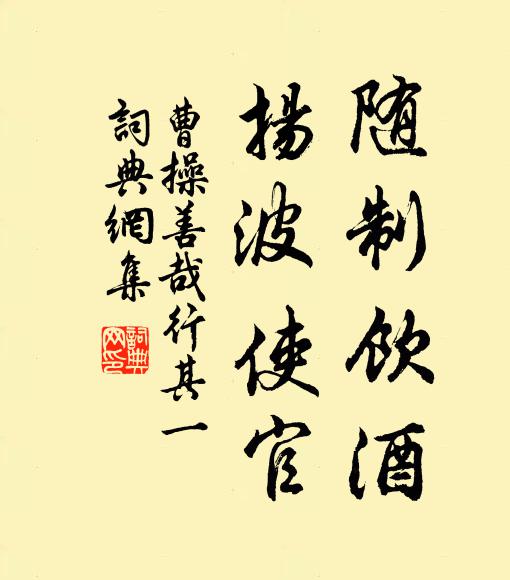 随制饮酒
揚波使官
曹操善哉行其一
詞典網集
詞典網印